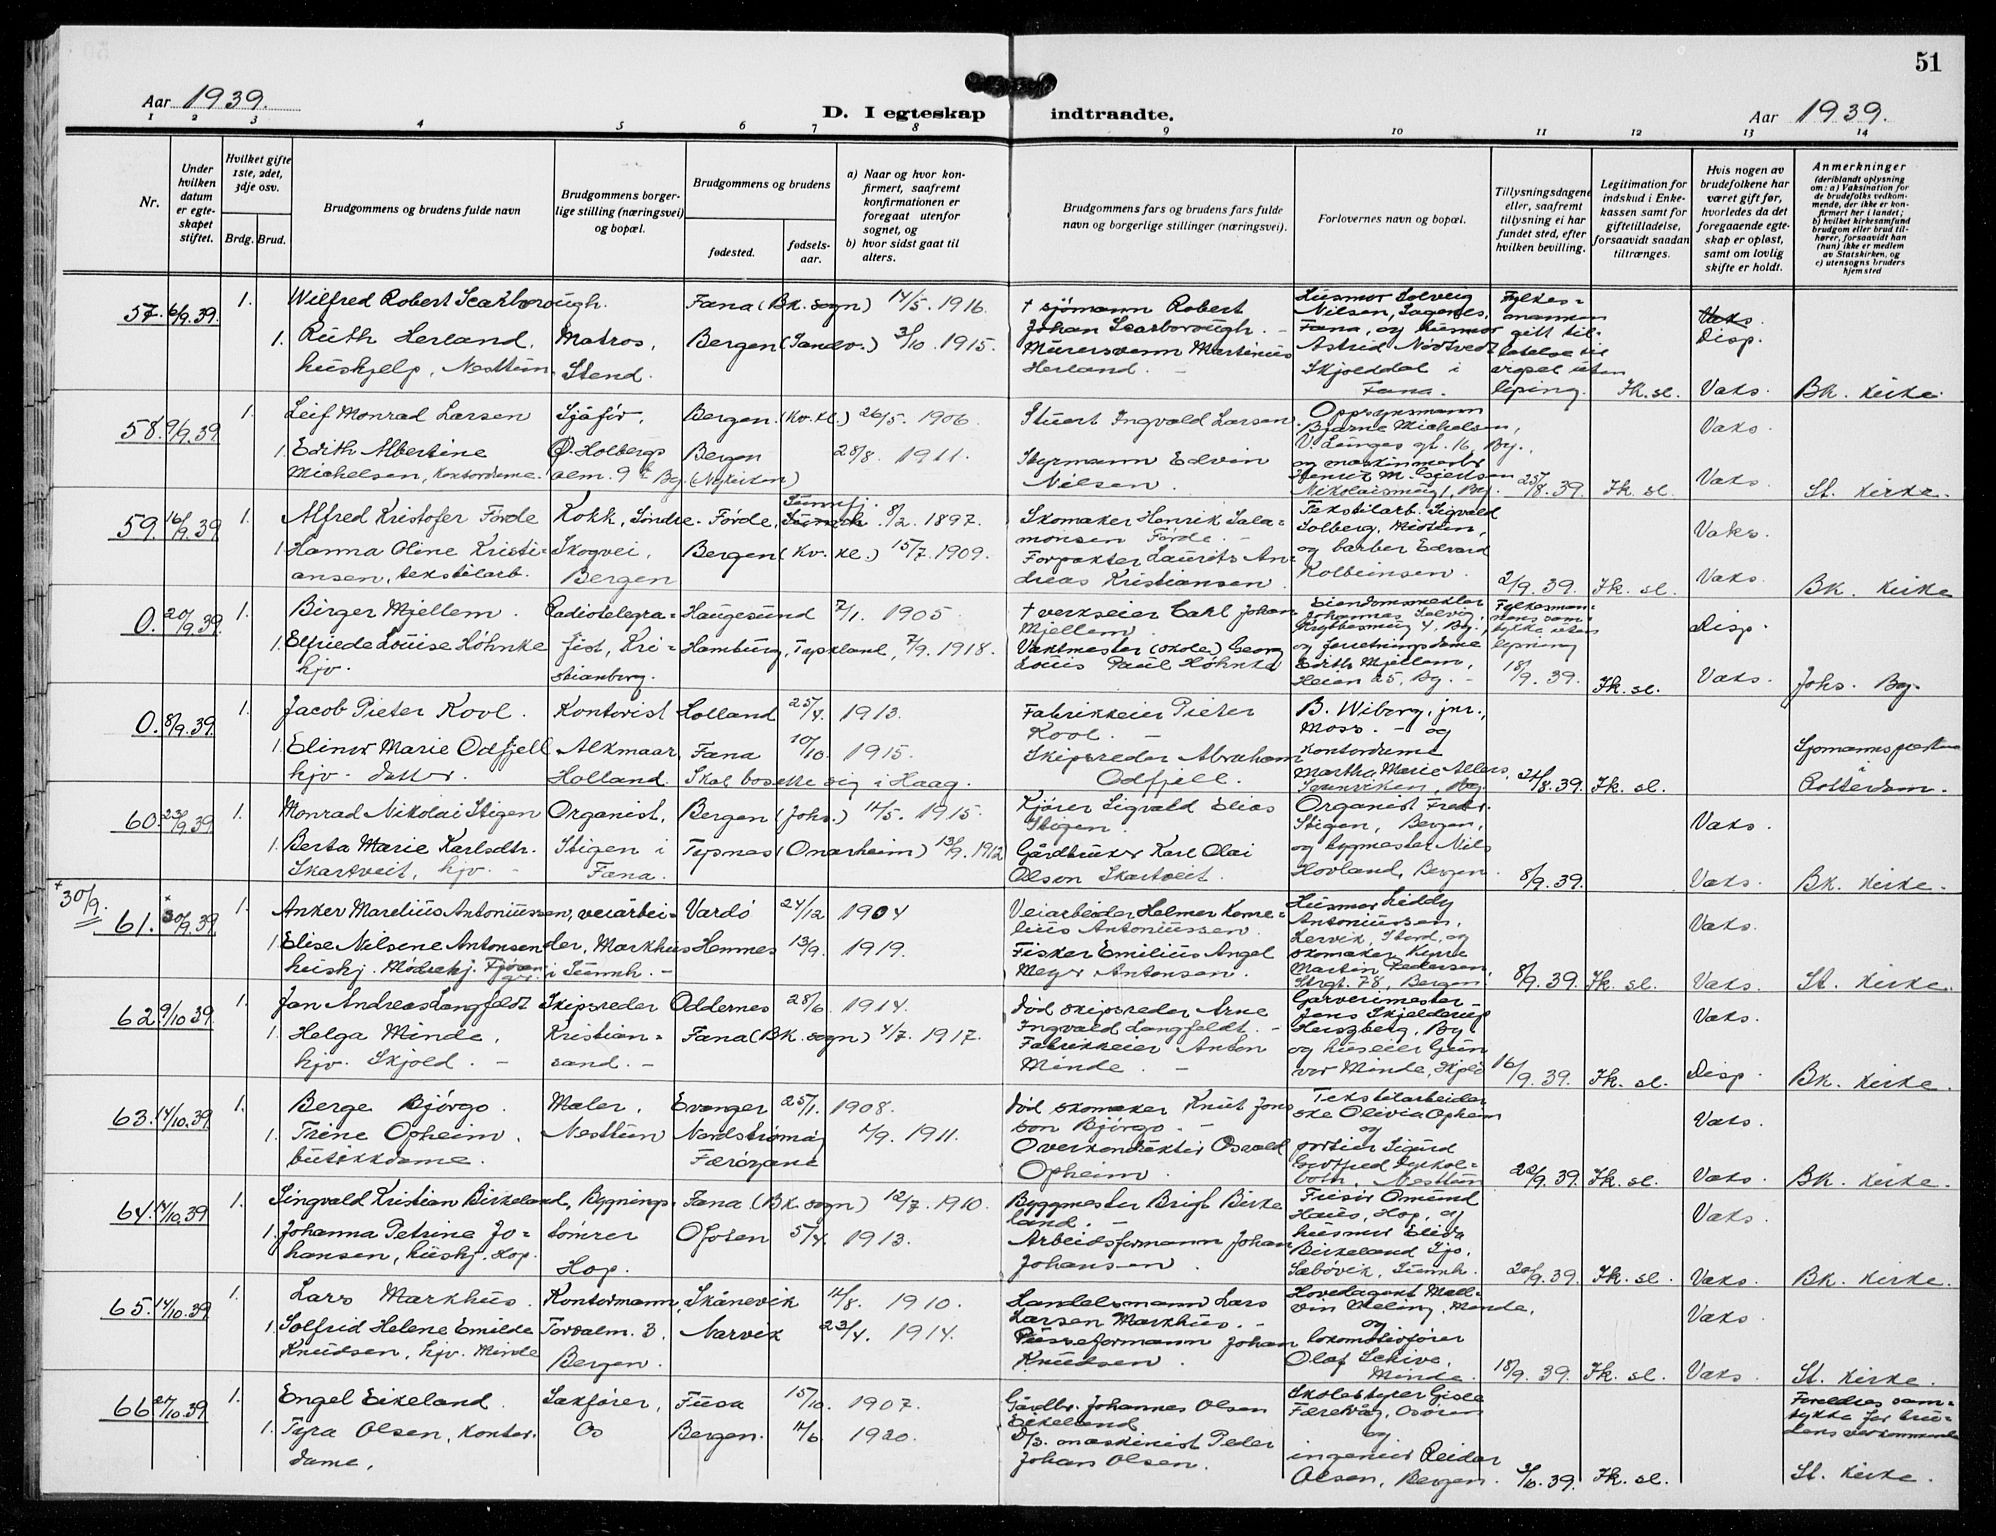 51
Aar 1939.
D. I egteskap indtraadte.
Aar 1939.
1 2 3 4 5 6 7 8 9 10 11 12 13 14
Nr.
Under hvilken datum er egteskapet stiftet.
Hvilket gifte 1ste, 2det, 3dje osv.
Brdg. Brud.
Brudgommens og brudens fulde navn
Brudgommens borgerlige stilling (næringsvei) og bopæl.
Brudgommens og brudens
fødested.
fødselsaar.
a) Naar og hvor konfirmert, saafremt konfirmationen er foregaat utenfor sognet, og
b) hvor sidst gaat til alters.
Brudgommens fars og brudens fars fulde navn og borgerlige stillinger (næringsvei).
Forlovernes navn og bopæl.
Tillysningsdagene eller, saafremt tillysning ei har fundet sted, efter hvilken bevilling.
Legitimation for indskud i Enkekassen samt for giftetilladelse, forsaavidt saadan tiltrænges.
Hvis nogen av brudefolkene har været gift før, hvorledes da det foregaaende egteskap er opløst, samt om lovlig skifte er holdt.
Anmerkninger
(deriblandt oplysning om: a) Vaksination for de brudefolks vedkommende, der ikke er konfirmert her i landet; b) hvilket kirkesamfund brudgom eller brud tilhører, forsaavidt han (hun) ikke er medlem av Statskirken, og c) utensogns bruders hjemsted
57. 6/9.39. 1. Wilfred Robert Scarborough. Fana (Bk. sogn) 14/5. 1916. † sjömann Robert Johan Scarborough. Husmor Solveig Nilsen, Fana, og husmor Astrid Nødtvedt Skjolddal i Fana. Fylkesmannen gitt tillatelse til vigsel uten lysing. Fk. sl. Disp.
1. Ruth Herland, hushjelp, Nesttun. Matros, Stend. Bergen (Sandv.) 3/10. 1915. Murersvenn Martinius Herland. Vaks. Bk. kirke.
58. 9/9.39 1. Leif Monrad Larsen Sjåför, Bergen (Kv. kl.) 26/5. 1906. Stuert Ingvald Larsen. Bjarne Michelsen, Vaks.
1. Edith Albertine Michelsen, kontordame. Holbergs alm. 9 Bg. Bergen (Nykirken) 28/8. 1911. Styrmann Edvin Nilsen. 25/8.39. Fk. sl. Vaks. St. kirke.
59. 16/9.39 1. Alfred Kristofer Förde Kokk, Söndre Skogvei, Bergen Förde, 8/2. 1897. Skomaker Henrik Salamonsen Förde. Tekstilarb. Sigvald Solberg, og barber Edvard Kolbeinsen. Vaks.
1. Hanna Oline Kristiansen, tekstilarb. Bergen (Kv. kl.) 15/7. 1909. Forpakter Laurits Andreas Kristiansen. 2/9.39. Fk. sl. Vaks. Bk. kirke
0. 20/9.39. 1. Birger Mjellem. Radiotelegrafist, Kristianborg. Haugesund 7/1. 1905 † verkseier Carl Johan Mjellem. Disp.
1. Elfriede Louise Höhnke hjv. Hamburg, Tyskland, 7/9. 1918. Vaktmester (skole) Georg Louis Paul Höhnke og forretningsdame Edith Mjellem, Heien 25, Bg. 18/9.39. Fk. sl. Vaks. Johs. Bg.
0. 8/9.39. 1. Jacob Pieter Kool. Kontorist Alkmaar, Holland. Holland 25/4. 1913. Fabrikkeier Pieter Kool. B. Wiborg, jnr., Moss. og kontordame Martha Marie
1. Elinor Marie Odfjell hjv. datter. Fana 10/10. 1915. Skal bosette sig i Haag. Skipsreder Abraham Odfjell. 24/8.39. Fk. sl. Sjömannspresten i Rotterdam.
60. 23/9.39 1. Monrad Nikolai Stigen Organist, Stigen i Fana. Bergen (Johs.) 14/5. 1915. Kjörer Sigvald Elias Stigen. Organist Fredr. Stigen, Bergen, og bygmester Nils Hovland, Bergen. Vaks.
1. Berta Marie Karlsdtr. Skartveit, hjv. Tysnes (Onarheim) 13/9. 1912 Gårdbruker Karl Olai Olson Skartveit. 8/9.39. Vaks. Bk. kirke.
+30/9.
61. +30/9.39 1. Anker Marelius Antoniussen, veiarbeider, Markhus i Sunnh. Vardö 24/12 1904 Veiarbeider Helmer Kornelius Antoniussen. Husmor Liddy Antoniussen, Lervik, Stord, og skomaker Martin Pedersen, Strgt. 78, Bergen. Vaks.
1. Elise Nilsene Antonsen hushj. Hemnes 13/9. 1919. Fisker Emilius Angel Meyer Antonsen. 8/9.39. Fk. sl. Vaks. St. kirke.
62. 9/10.39 1. Jan Andreas Langfeldt Skipsreder Kristiansand. Oddernes 28/6. 1914. Död skipsreder Arne Ingvald Langfeldt. Garverimester Jens Skjelderup Herzberg, Bg. og huseier Gunvor Minde, Vaks.
1. Helga Minde, hjv. Skjold. Fana (Bk. sogn) 4/7. 1917. Fabrikkeier Anton Minde. 16/9.39. Fk. sl. Disp. Bk. kirke.
63. 14/10.39 1. Berge Björgo. Maler, Nesttun Evanger 25/1. 1908. Död skomaker Knut Jonsson Björgo. Tekstilarbeiderske Olivia Opheim og portier Sigurd Nesttun Vaks.
1. Trine Opheim, butikkdame. Nordströmö, Færöyane 1911. Overkonduktör Osvald Opheim. 22/9.39. Fk. sl. Vaks. Bk. kirke.
64. 14/10.39 1. Singvald Kristian Birkeland, Bygningstömrer Hop. Fana (Bk. sogn) 12/7. 1910. Byggmester Brigt Birkeland. Frisör Omund Haus, Hop, og husmor Elida Birkeland Sæbövik, Sunnh. Vaks.
1. Johanna Petrine Johansen, hushj. Hop. Ofoten 5/4. 1913. Arbeidsformann Johan Johansen. 20/9.39. Fk. sl. Vaks. Bk. kirke.
65. 14/10.39 1. Lars Markhus. Kontormann, Tordalm. 3, Bergen. Skånevik 14/8. 1910. Handelsmann Lars Larsen Markhus. Minde, og lokomotivförer Olaf Schive, Minde. Vaks.
1. Solfrid Helene Emilde Knudsen, hjv. Minde Narvik 23/4. 1914. Pusseformann Johan Knudsen. 18/9.39. Fk. sl. Vaks. St. kirke.
66. 27/10.39 1. Engel Eikeland Sakförer, Os Fusa 15/10. 1907. Gårdbr. Johannes Olsen Eikeland Skolestyrer Gisle Færevåg, Osören og ingeniör Reidar Olsen, Bergen. Foreldres samtykke for brudens vedkommende
1. Tyra Olsen, kontordame. Bergen. 14/6. 1920. D/s. maskinist Peder Johan Olsen. 3/10.39. Fk. sl. St. kirke.